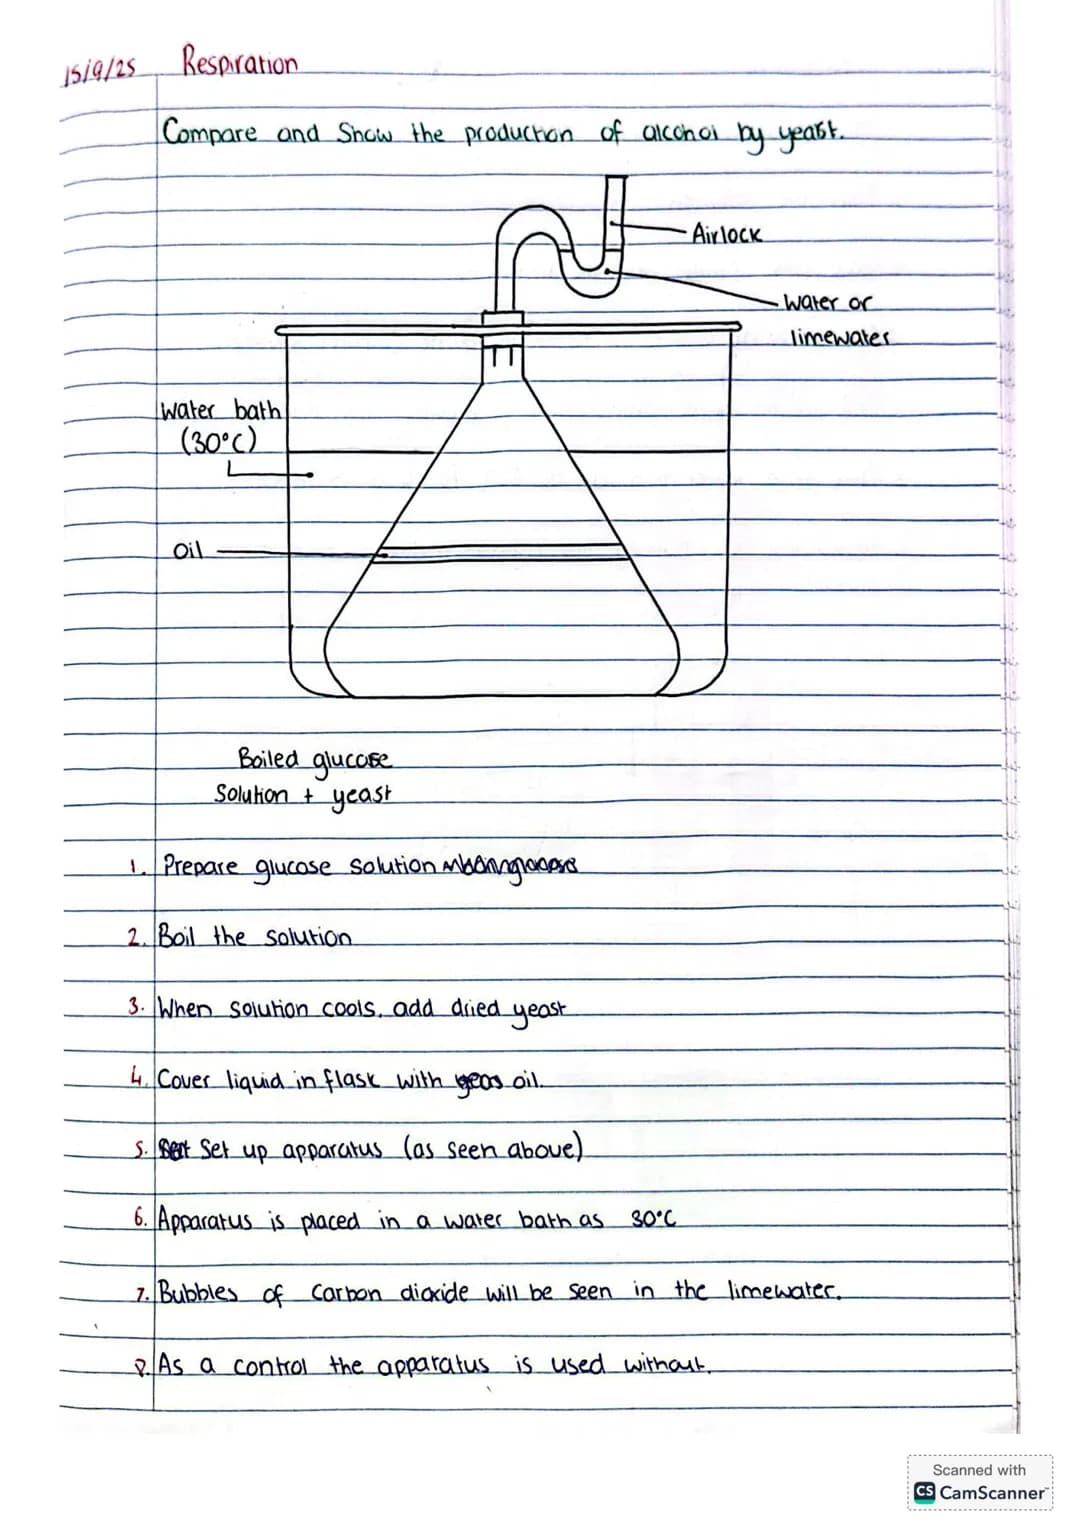 15/9/25 Respiration
Compare and Show the production of alcohol by yeast.
Airlock
water or
limewater
water bath
(30°C)
Oil
Boiled glucose
Solution + yeast
1. Prepare glucose solution
2. Boil the solution
3. When solution cools, add dried yeast
4. Cover liquid in flask with oil.
5. Set up apparatus (as seen above)
6. Apparatus is placed in a water bath as 30°C
7. Bubbles of Carbon dioxide will be seen in the limewater.
8. As a control the apparatus is used without.
Scanned with
CS CamScanner